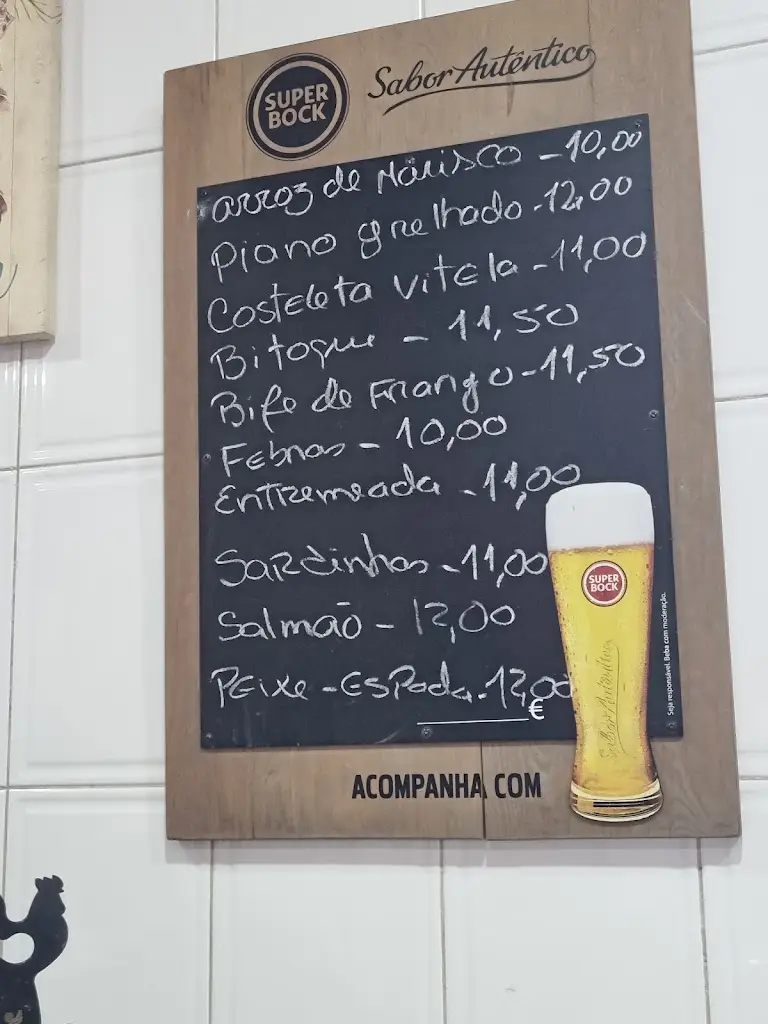 SUPER BOCK
Sabor Autêntico
arroz de Marisco - 10,00
Piano grelhado - 12,00
Costeleta vitela - 11,00
Bitoque - 11,50
Bife de Frango - 11,50
Febras - 10,00
Entremeada - 11,00
Sardinhas - 11,00
Salmão - 12,00
Peixe - Espada - 12,00
€
SUPER BOCK
Sabor Autêntico
Seja responsável. Beba com moderação.
ACOMPANHA COM